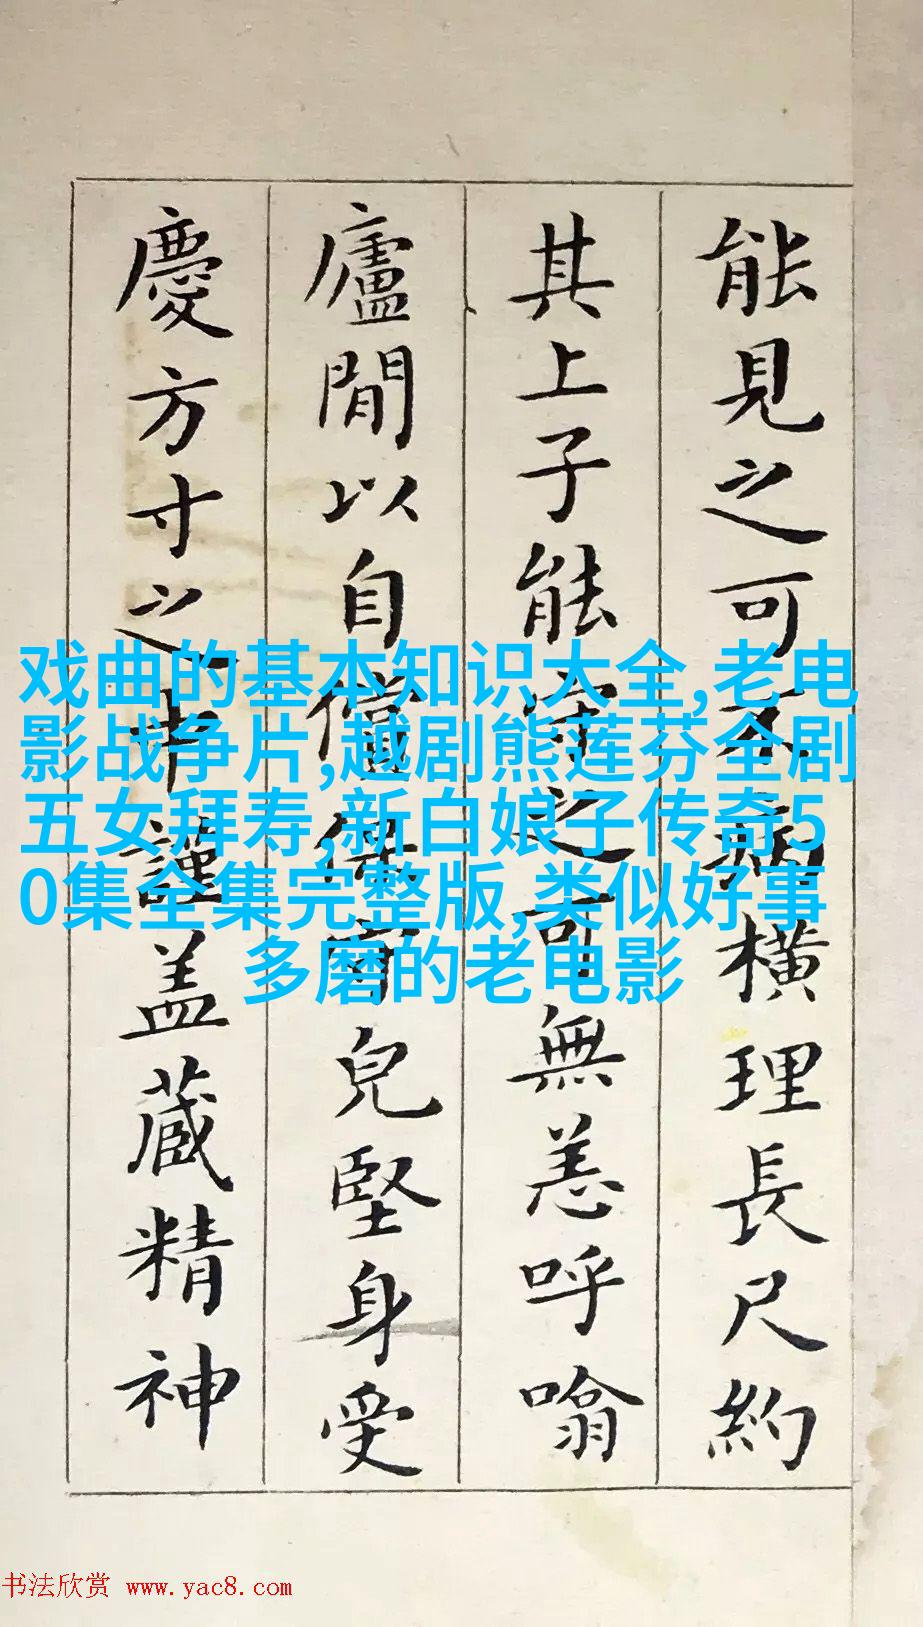 能見之可不病橫理長尺約
其上子能守之可無恙呼噏
廬閒以自償保守皃堅身受
慶方寸之中謹盖藏精神
戏曲的基本知识大全,老电
影战争片,越剧熊莲芬全剧
五女拜寿,新白娘子传奇5
0集全集完整版,类似好事
多磨的老电影
书法欣赏 www.yac8.com